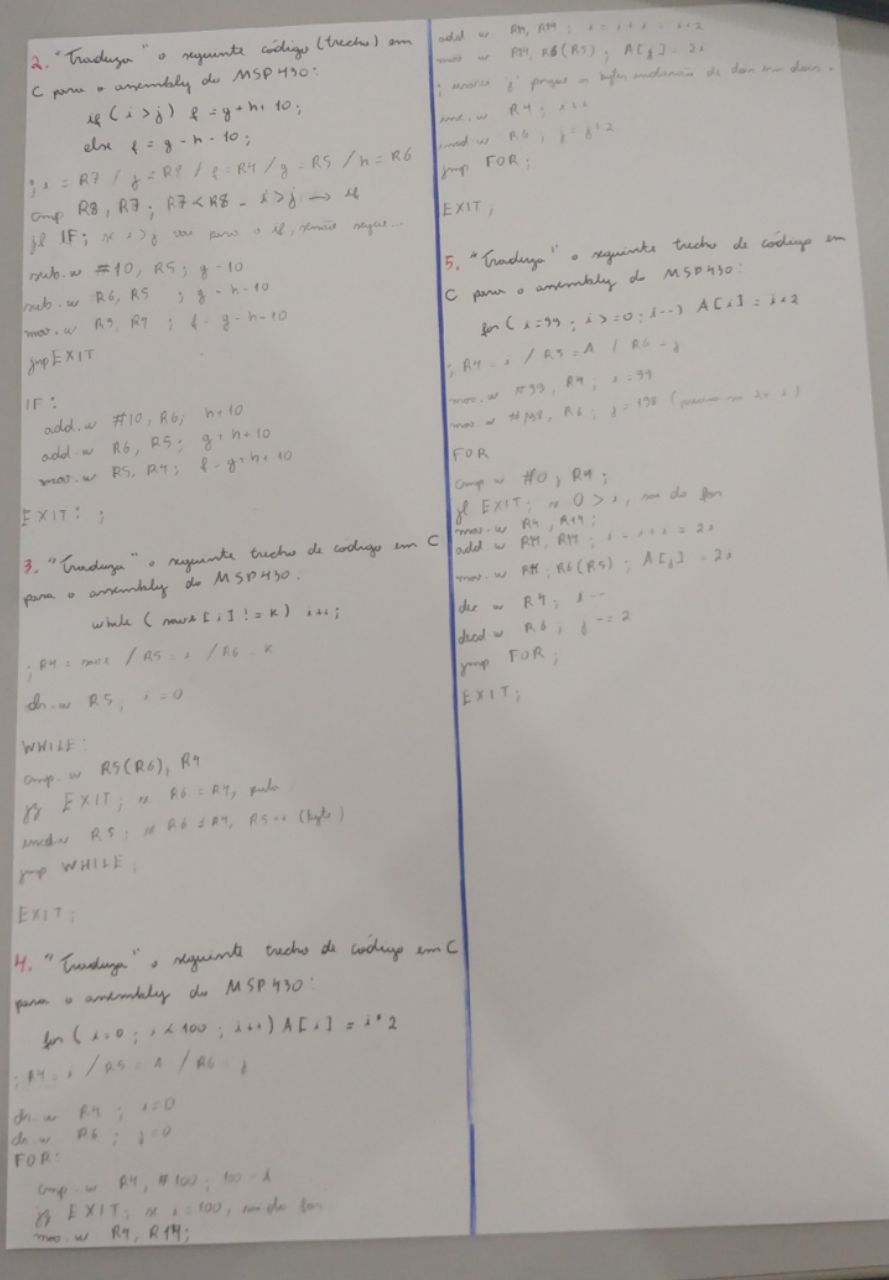 2. "Traduza" o seguinte código (trecho) em
C para o assembly do MSP430:
if (i > j) f = g + h + 10;
else f = g - h - 10;
; i = R7 / j = R8 / f = R4 / g = R5 / h = R6
cmp R8, R7; R7 < R8 - i > j → if
jl IF; se i > j vai para o if, senão segue...
sub.w #10, R5; g - 10
sub.w R6, R5 ; g - h - 10
mov.w R5, R4 ; f = g - h - 10
jmp EXIT
IF:
add.w #10, R6; h + 10
add.w R6, R5; g + h + 10
mov.w R5, R4; f = g + h + 10
EXIT: ;
3. "Traduza" o seguinte trecho de código em C
para o assembly do MSP430.
while (save[i] != k) i++;
; R4 = save / R5 = i / R6 = k
clr.w R5; i = 0
WHILE:
cmp.w R5(R6), R4
jz EXIT; se R6 = R4, pula
incd.w R5; se R6 ≠ R4, R5++ (byte)
jmp WHILE;
EXIT;
4. "Traduza" o seguinte trecho de código em C
para o assembly do MSP430:
for (i=0; i < 100; i++) A[i] = i*2
; R4 = i / R5 = A / R6 = j
clr.w R4; i=0
clr.w R6; j=0
FOR:
cmp.w R4, #100; 100 - i
jz EXIT; se i = 100, sai do for
mov.w R4, R14;
add.w R14, R14; i = i + i = i*2
mov.w R14, R6(R5); A[j] = 2i
; "j" porque os bytes de dois em dois.
inc.w R4; i++
incd.w R6; j = j+2
jmp FOR;
EXIT;
5. "Traduza" o seguinte trecho de código em
C para o assembly do MSP430:
for (i=99; i>=0; i--) A[i] = i*2
; R4 = i / R5 = A / R6 = j
mov.w #99, R4; i=99
mov.w #198, R6; j=198 (2x i)
FOR
cmp.w #0, R4;
jl EXIT; se 0 > i, sai do for
mov.w R4, R14;
add.w R14, R14; i = i+i = 2i
mov.w R14, R6(R5); A[j] = 2i
dec.w R4; i--
decd.w R6; j -= 2
jmp FOR;
EXIT;